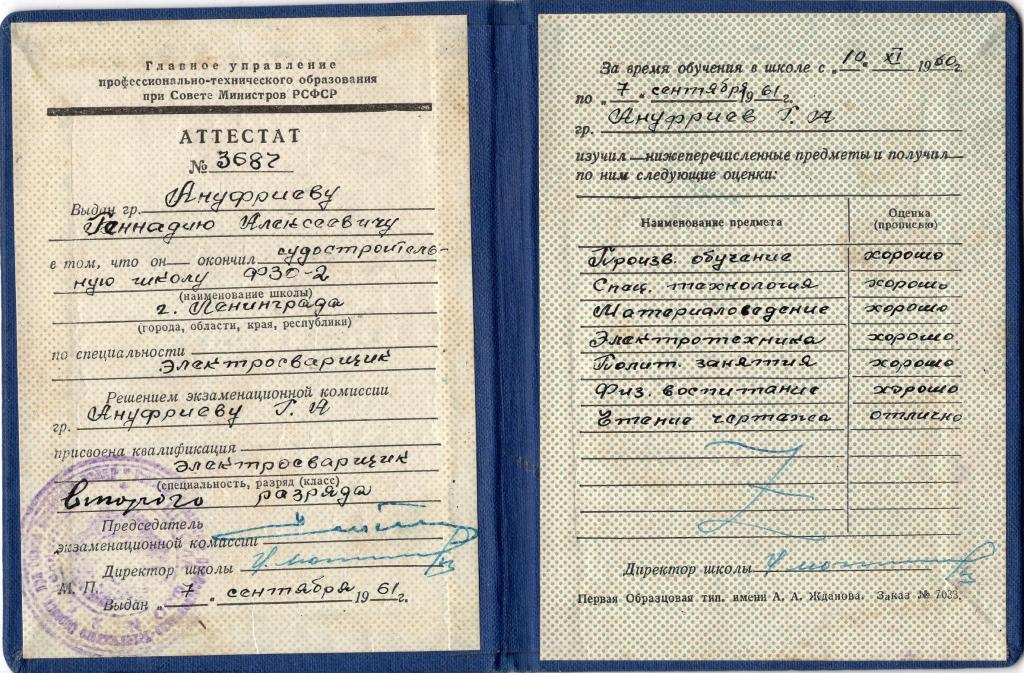 Главное управление
профессионально-технического образования
при Совете Министров РСФСР
АТТЕСТАТ
№ 3687
Выдан гр. Ануфриеву
Геннадию Алексеевичу
в том, что он окончил судостроитель-
ную школу ФЗО-2
(наименование школы)
г. Ленинграда
(города, области, края, республики)
по специальности
электросварщик
Решением экзаменационной комиссии
гр. Ануфриеву Г. А
присвоена квалификация
электросварщик
(специальность, разряд (класс)
второго разряда
Председатель
экзаменационной комиссии
Директор школы
М. П.
Выдан „ 7 " сентября 1961г.
За время обучения в школе с „10" XI 1960г.
по „ 7 " сентября 1961г.
гр. Ануфриев Г. А
изучил нижеперечисленные предметы и получил
по ним следующие оценки:
Наименование предмета Оценка (прописью)
Произв. обучение хорошо
Спец. технология хорошо
Материаловедение хорошо
Электротехника хорошо
Полит. занятия хорошо
Физ. воспитание хорошо
Чтение чертежа отлично
Директор школы
Первая Образцовая тип. имени А. А. Жданова. Заказ № 7033.